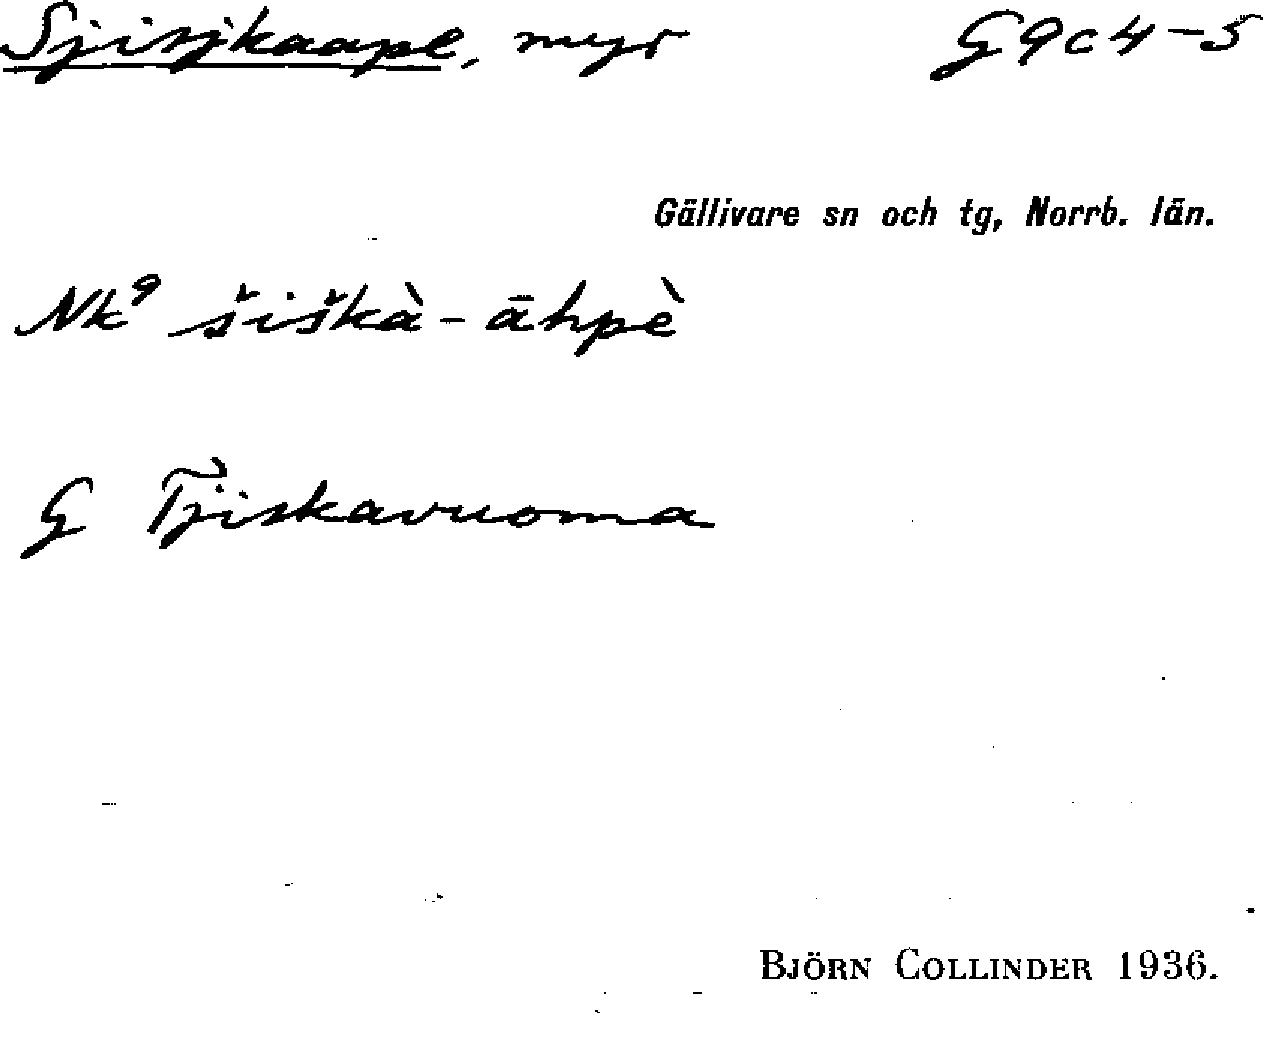 Sjisjkaape, myr G9c4-5
Gällivare sn och tg, Norrb. län.
Nk⁹ šiškà-āhpè
G Tjiskavuoma
BJÖRN COLLINDER 1936.